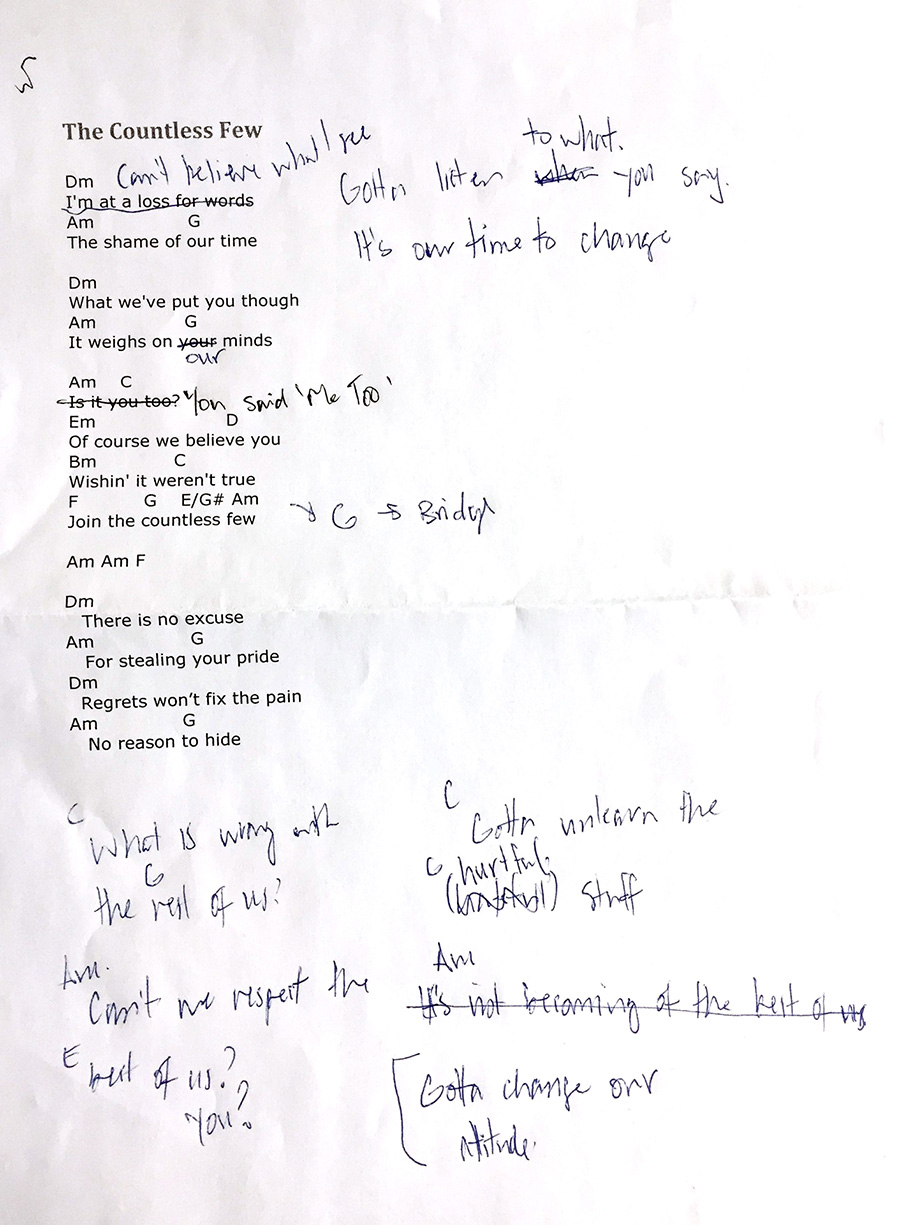 The Countless Few
Can't believe what I see
Dm
I'm at a loss for words
Am G
The shame of our time
to what.
Gotta listen when you say.
It's our time to change
Dm
What we've put you though
Am G
It weighs on your minds
our
Am C
Is it you too? You said 'Me Too'
Em D
Of course we believe you
Bm C
Wishin' it weren't true
F G E/G# Am
Join the countless few → G → Bridge
Am Am F
Dm
There is no excuse
Am G
For stealing your pride
Dm
Regrets won't fix the pain
Am G
No reason to hide
C
What is wrong with
G
the rest of us?
Am.
Can't we respect the
E
best of us?
You?
C
Gotta unlearn the
G hurtful
( ) stuff
Am
It's not becoming of the best of us
Gotta change our
attitude.